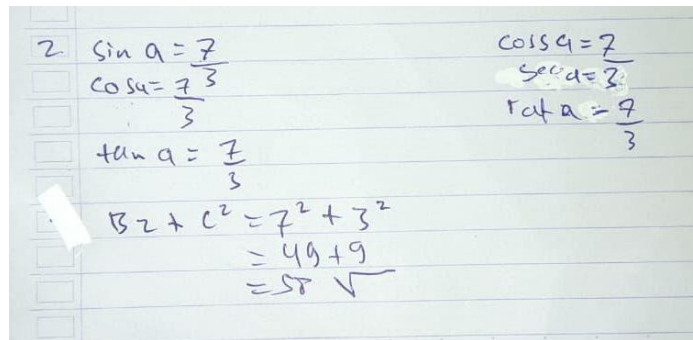 2. sin a = 7/3
cos a = 7/3
tan a = 7/3
B2 + C² = 7² + 3²
= 49 + 9
= 58 √
coss a = 7
sec a = 3
rat a = 7/3